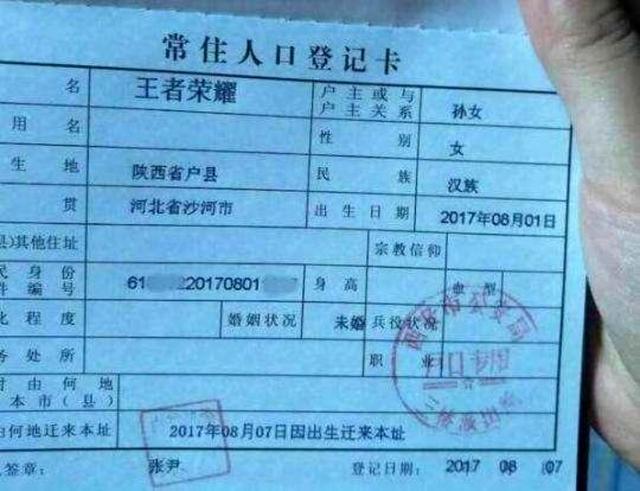 常住人口登记卡
名 王者荣耀 户主或与户主关系 孙女
用名 性别 女
生地 陕西省户县 民族 汉族
贯 河北省沙河市 出生日期 2017年08月01日
县)其他住址 宗教信仰
民身份
件编号 61 220170801 身高 血型
化程度 婚姻状况 未婚 兵役状况
务处所 职业
时由何地
本市(县)
由何地迁来本址 2017年08月07日因出生迁来本址
签章: 张尹 登记日期: 2017 08 07
西安市公安局
户口专用